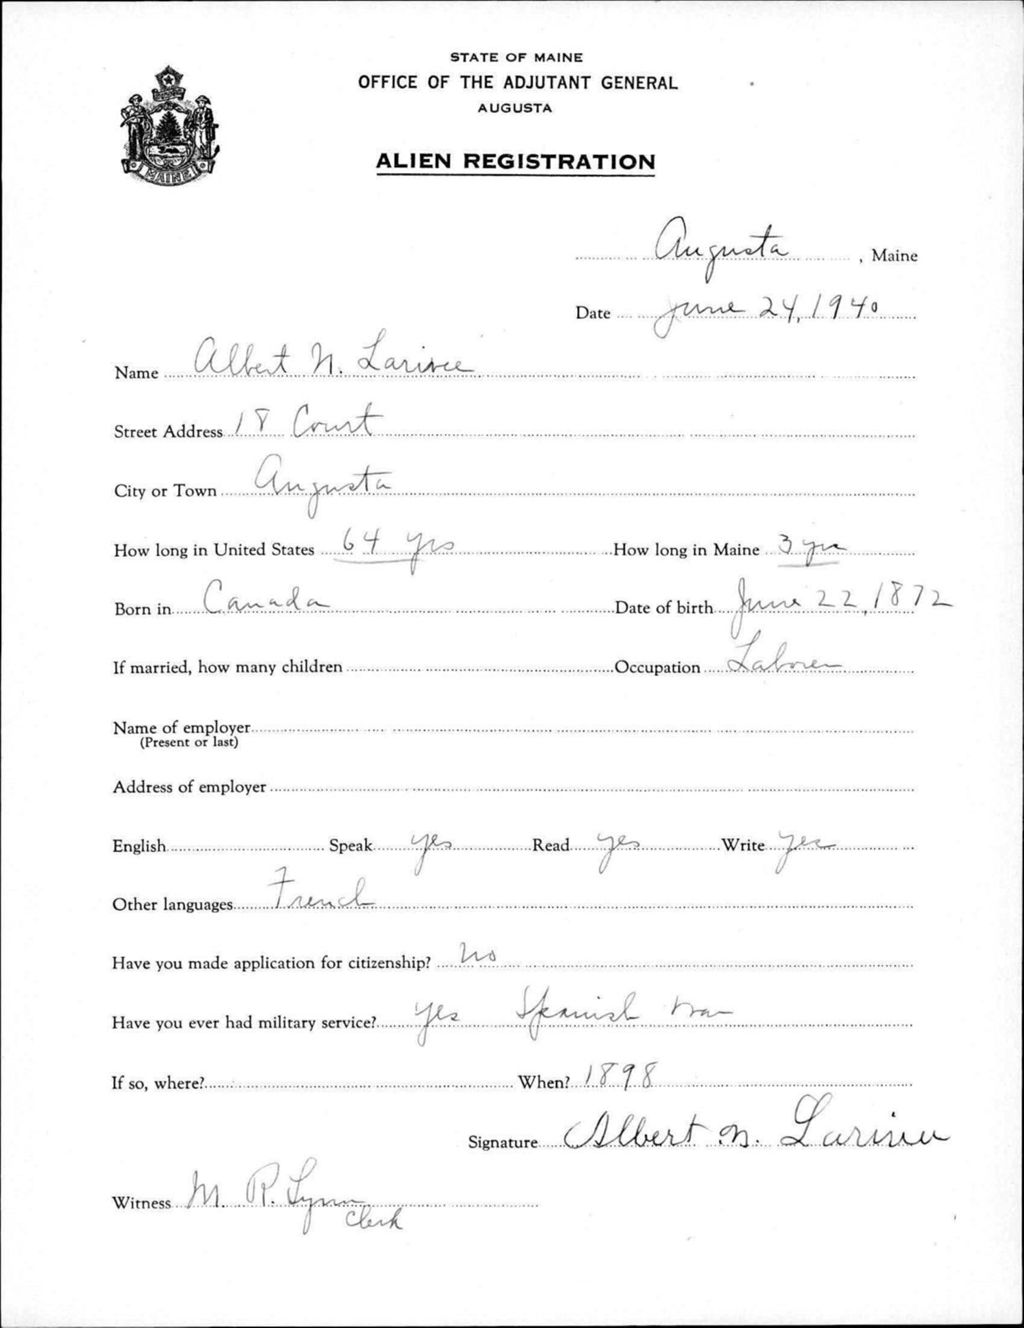 STATE OF MAINE
OFFICE OF THE ADJUTANT GENERAL
AUGUSTA
MAINE
ALIEN REGISTRATION
Augusta, Maine
Date June 24, 1940
Name Albert N. Larivee
Street Address 18 Court
City or Town Augusta
How long in United States 64 yrs How long in Maine 3 yrs
Born in Canada Date of birth June 22, 1872
If married, how many children Occupation Laborer
Name of employer
(Present or last)
Address of employer
English Speak yes Read yes Write yes
Other languages French
Have you made application for citizenship? No
Have you ever had military service? Yes Spanish War
If so, where? When? 1898
Signature Albert N. Larivee
Witness M. R. Lynn
Clerk